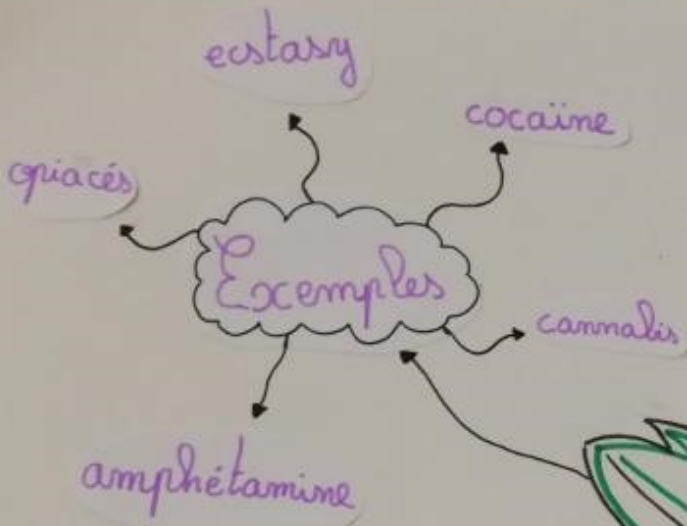 ecstasy
cocaïne
opiacés
Exemples
cannabis
amphétamine